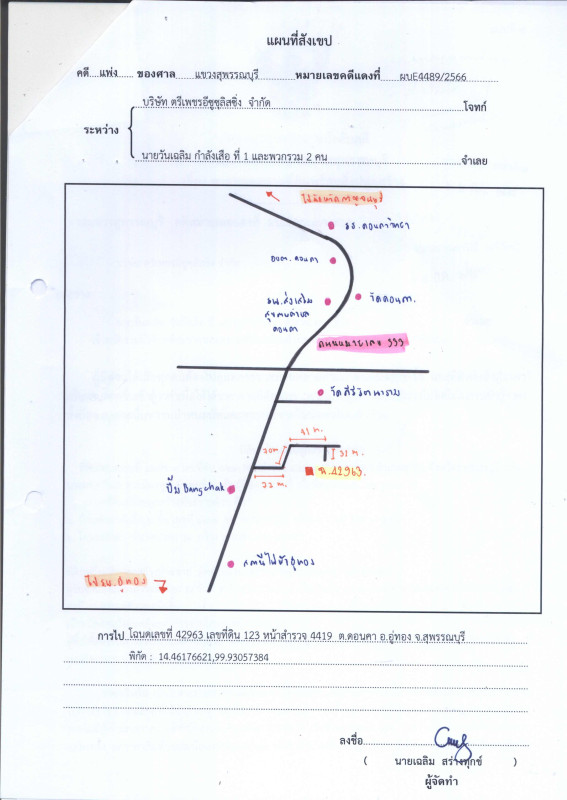 แผนที่สังเขป
คดี แพ่ง ของศาล แขวงสุพรรณบุรี หมายเลขคดีแดงที่ ผบE4489/2566
บริษัท ตรีเพชรอีซูซุลิสซิ่ง จำกัด โจทก์
ระหว่าง
นายวันเฉลิม กำลังเสือ ที่ 1 และพวกรวม 2 คน จำเลย
รร.ดอนคาวิทยา
อบต.ดอนคา
รพ.ส่งเสริม
สุขภาพตำบล
ดอนคา
วัดดอนคา
ถนนหมายเลข 333
41 m.
20m
31 m.
22 m.
ฉ.42963.
ปั๊ม Bangchak
สถานีไฟฟ้าอู่ทอง
ไป อ.อู่ทอง
การไป โฉนดเลขที่ 42963 เลขที่ดิน 123 หน้าสำรวจ 4419 ต.ดอนคา อ.อู่ทอง จ.สุพรรณบุรี
พิกัด : 14.46176621,99.93057384
ลงชื่อ
( นายเฉลิม สร่างทุกข์ )
ผู้จัดทำ